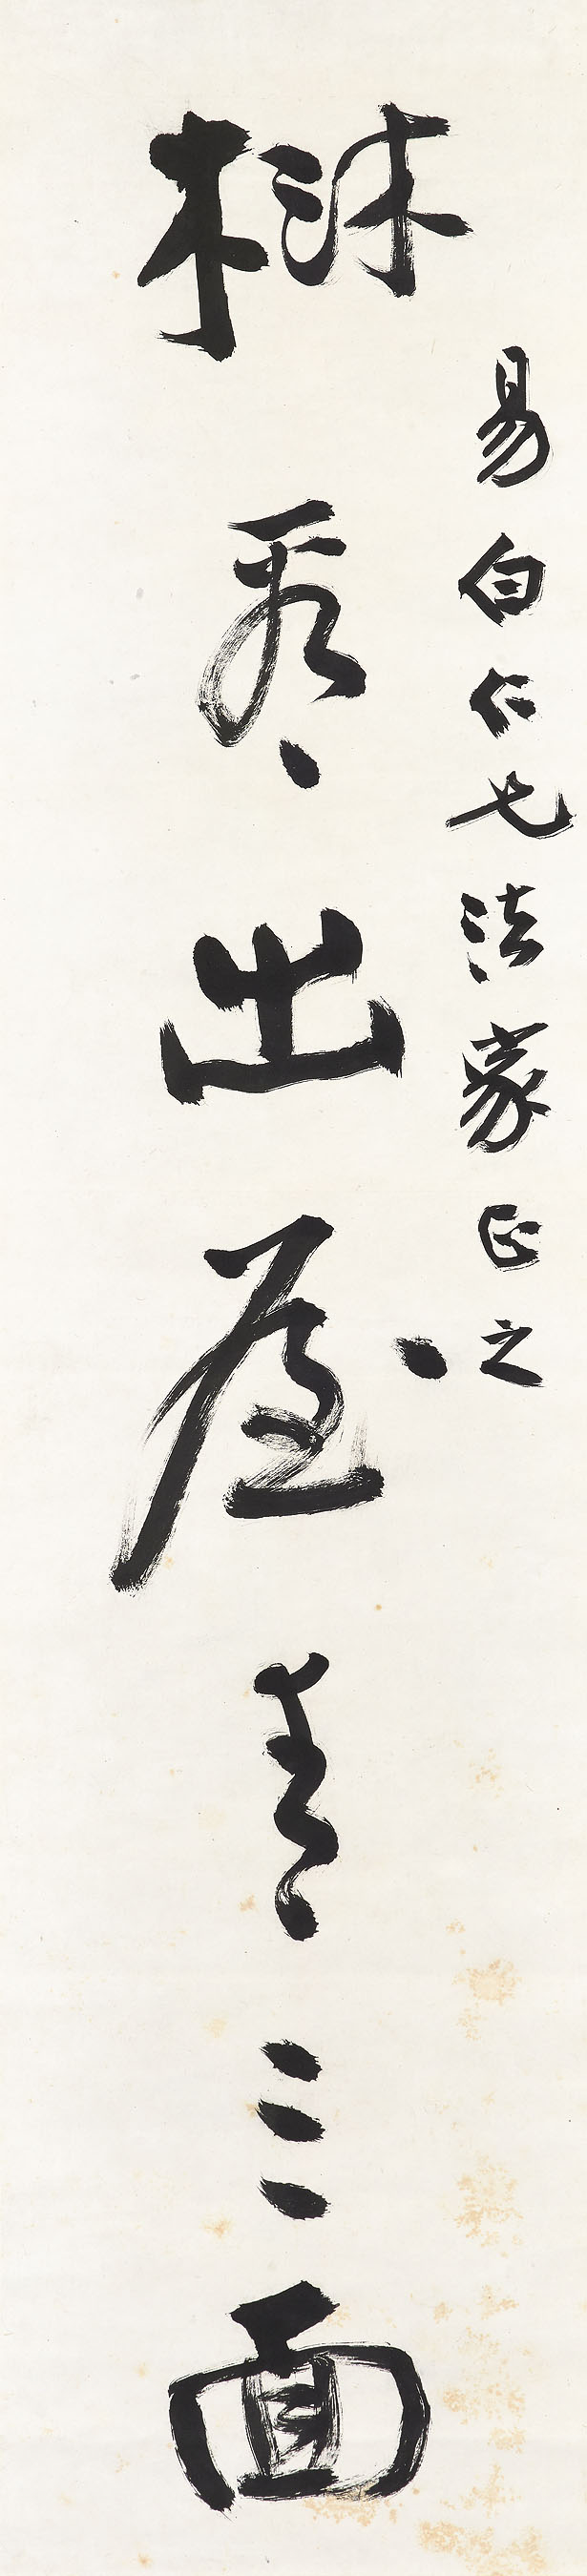 易白仁兄法家正之
出屋青三面